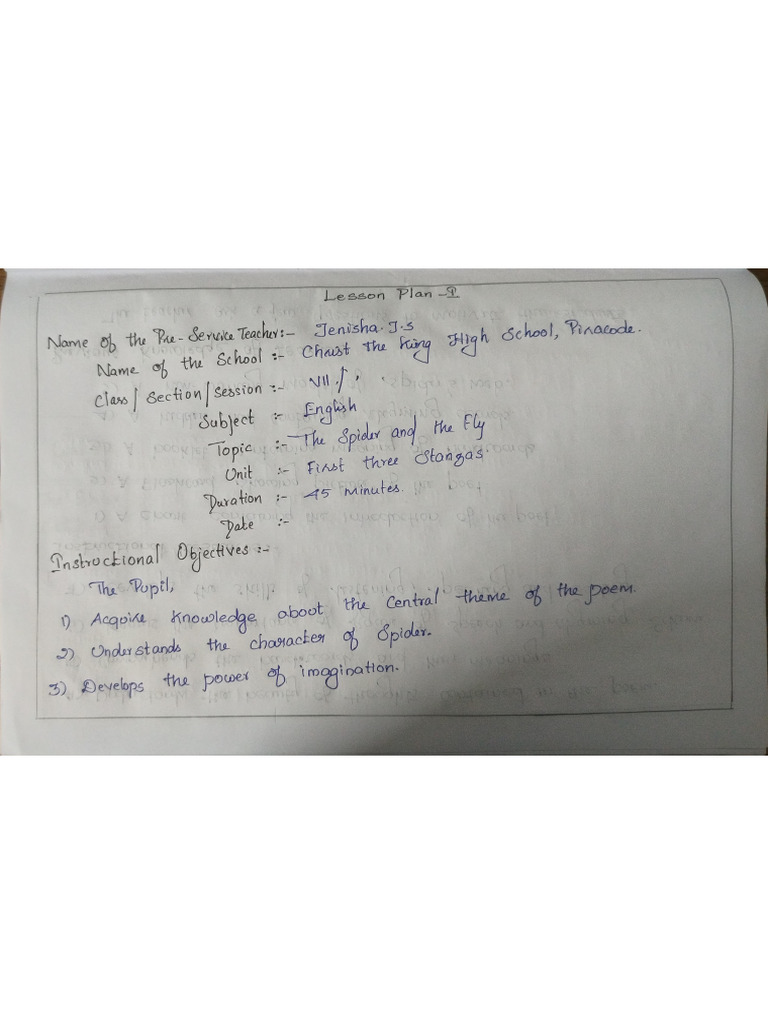 Lesson Plan - I
Name of the Pre-Service Teacher:- Jenisha. J.S
Name of the School :- Christ The King High School, Pinacode.
Class / Section / Session :- VII /
Subject :- English
Topic :- The Spider and the Fly
Unit :- First three Stanzas.
Duration :- 45 Minutes.
Date :-
Instructional Objectives :-
The Pupil,
1) Acquire knowledge about the central theme of the poem.
2) Understands the character of Spider.
3) Develops the power of imagination.